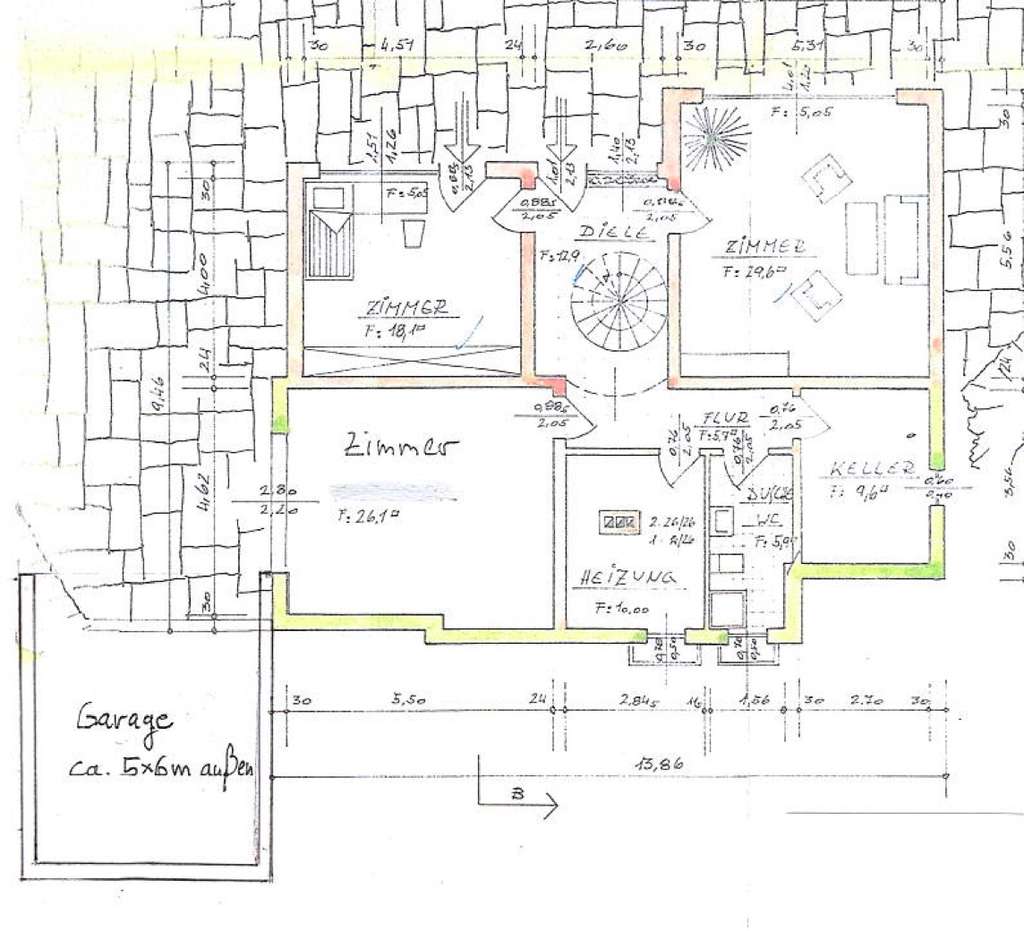 30 4,51 24 2,60 30 5,31 30
1,51
1,26
1,40
2,13
4,01
F: 5,05
0,885
2,13
1,01
2,13
F: 5,05
0,885
2,05
2,05
DIELE
F: 12,9
ZIMMER
F: 29,6
ZIMMER
F: 18,1
30
4,00
24
9,46
4,62
30
30
5,56
24
3,56
30
0,885
2,05
FLUR
F: 5,7
0,76
2,05
0,76
2,05
0,76
2,05
Zimmer
F: 26,1
2,80
2,20
KELLER
F: 9,6
0,60
0,40
DUSCHE
WC
F: 5,9
2. 26/26
HEIZUNG
F: 10,00
0,70
0,50
0,70
0,50
30 5,50 24 2,845 16 1,56 30 2.70 30
13,86
B
Garage
ca. 5x6m außen